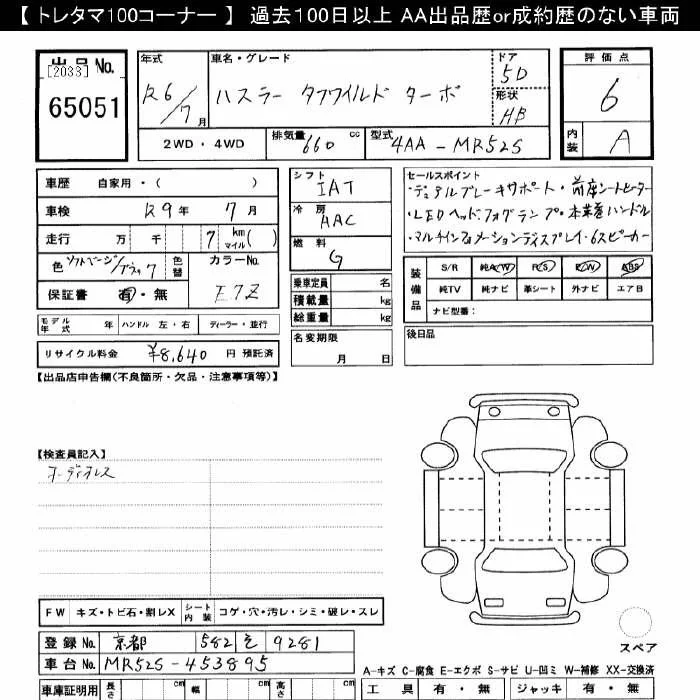 【 トレタマ100コーナー 】 過去100日以上 AA出品歴or成約歴のない車両
出品 No.
[2033]
65051
年式
R6/7月
車名・グレード
ハスラー タフワイルド ターボ
ドア
5D
形状
HB
評価点
6
内装
A
2WD・4WD
排気量 660 cc
型式 4AA-MR52S
車歴 自家用・( )
車検 R9年 7月
走行 万 千 7 km マイル ( )
色 ソフトベージュ/ブラック
色替
カラーNo.
E7Z
保証書 有・無
モデル年式 年 ハンドル 左・右 ディーラー・並行
リサイクル料金 ¥8,640 円 預託済
シフト
IAT
冷房
AAC
燃料
G
乗車定員 名
積載量 kg
総重量 kg
名変期限
月 日
セールスポイント
・デュアルブレーキサポート・前座シートヒーター
・LEDヘッド,フォグランプ・本革巻ハンドル
・マルチインフォメーションディスプレイ・6スピーカー
装備品
S/R 純A/W P/S P/W ABS
純TV 純ナビ 革シート 外ナビ エアB
ナビ型番:
後日品
【出品店申告欄(不良箇所・欠品・注意事項等)】
【検査員記入】
オーディオレス
FW キズ・トビ石・割レX シート内装 コゲ・穴・汚レ・シミ・破レ・スレ
登録 No. 京都 582 を 9281
車台 No. MR52S-453895
車庫証明用 長さ cm 幅 cm 高さ cm
スペア
A-キズ C-腐食 E-エクボ S-サビ U-凹ミ W-補修 XX-交換済
工具 有・無 ジャッキ 有・無